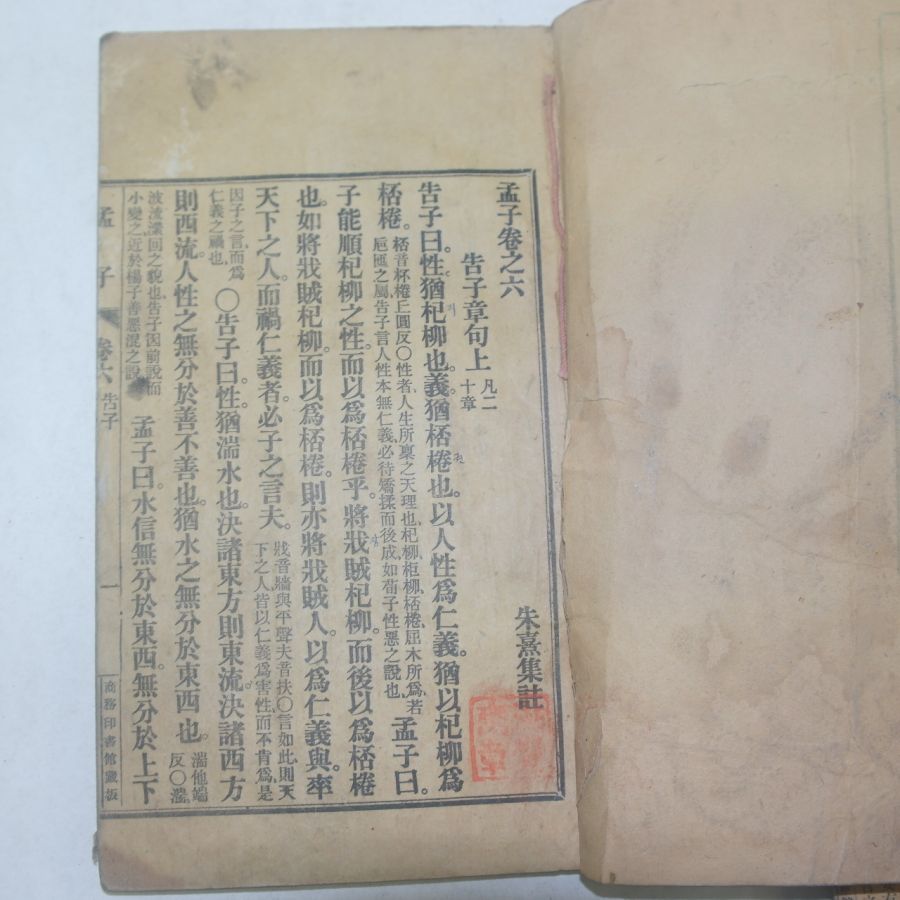 孟子卷之六
朱熹集註
告子章句上
凡二
十章
告子曰。性猶杞柳也。義猶桮棬也。以人性爲仁義。猶以杞柳爲
桮棬。
桮音杯棬丘圓反〇性者、人生所稟之天理也、杞柳、柜柳、桮棬、屈木所爲、若
巵匜之屬、告子言人性本無仁義、必待矯揉而後成、如荀子性惡之說也、
孟子曰。
子能順杞柳之性。而以爲桮棬乎。將戕賊杞柳。而後以爲桮棬
也。如將戕賊杞柳。而以爲桮棬。則亦將戕賊人。以爲仁義與。率
天下之人。而禍仁義者。必子之言夫。
戕音牆與平聲夫音扶〇言如此、則天
下之人皆以仁義爲害性而不肯爲、是
因子之言、而爲
仁義之禍也、
〇告子曰。性猶湍水也。決諸東方則東流。決諸西方
則西流。人性之無分於善不善也。猶水之無分於東西也。
湍他端
反〇湍、
波流瀠回之貌也、告子因前說而
小變之、近於楊子善惡混之說、
孟子曰。水信無分於東西。無分於上下
孟子
卷六
告子
一
商務印書館藏板